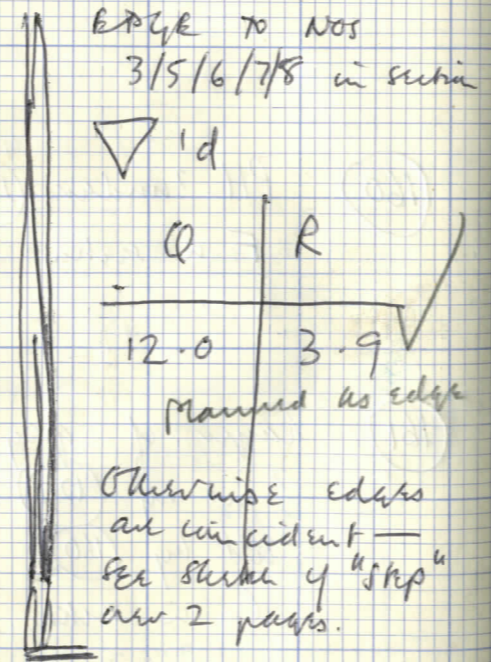 EDGE TO NOS
3/5/6/7/8 in section
'd
Q R
12.0 3.9
planned as edge
Otherwise edges
are coincident —
see sketch of "step"
over 2 pages.